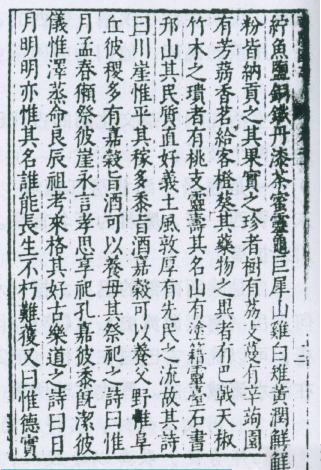 紵魚鹽銅鐵丹漆茶蜜靈龜巨犀山雞白雉黃潤鮮
粉皆納貢之其果實之珍者樹有荔支蔓有辛蒟園
有芳蒻香茗給客橙葵其藥物之異者有巴戟天椒
竹木之璝者有桃支靈壽其名山有塗籍靈臺石書
刊山其民質直好義土風敦厚有先民之流故其詩
曰川崖惟平其稼多黍旨酒嘉穀可以養父野惟阜
丘彼稷多有嘉穀旨酒可以養母其祭祀之詩曰惟
月孟春獺祭彼崖永言孝思享祀孔嘉彼黍既潔彼
儀惟澤蒸命良辰祖考來格其好古樂道之詩曰日
月明明亦惟其名誰能長生不朽難獲又曰惟德實